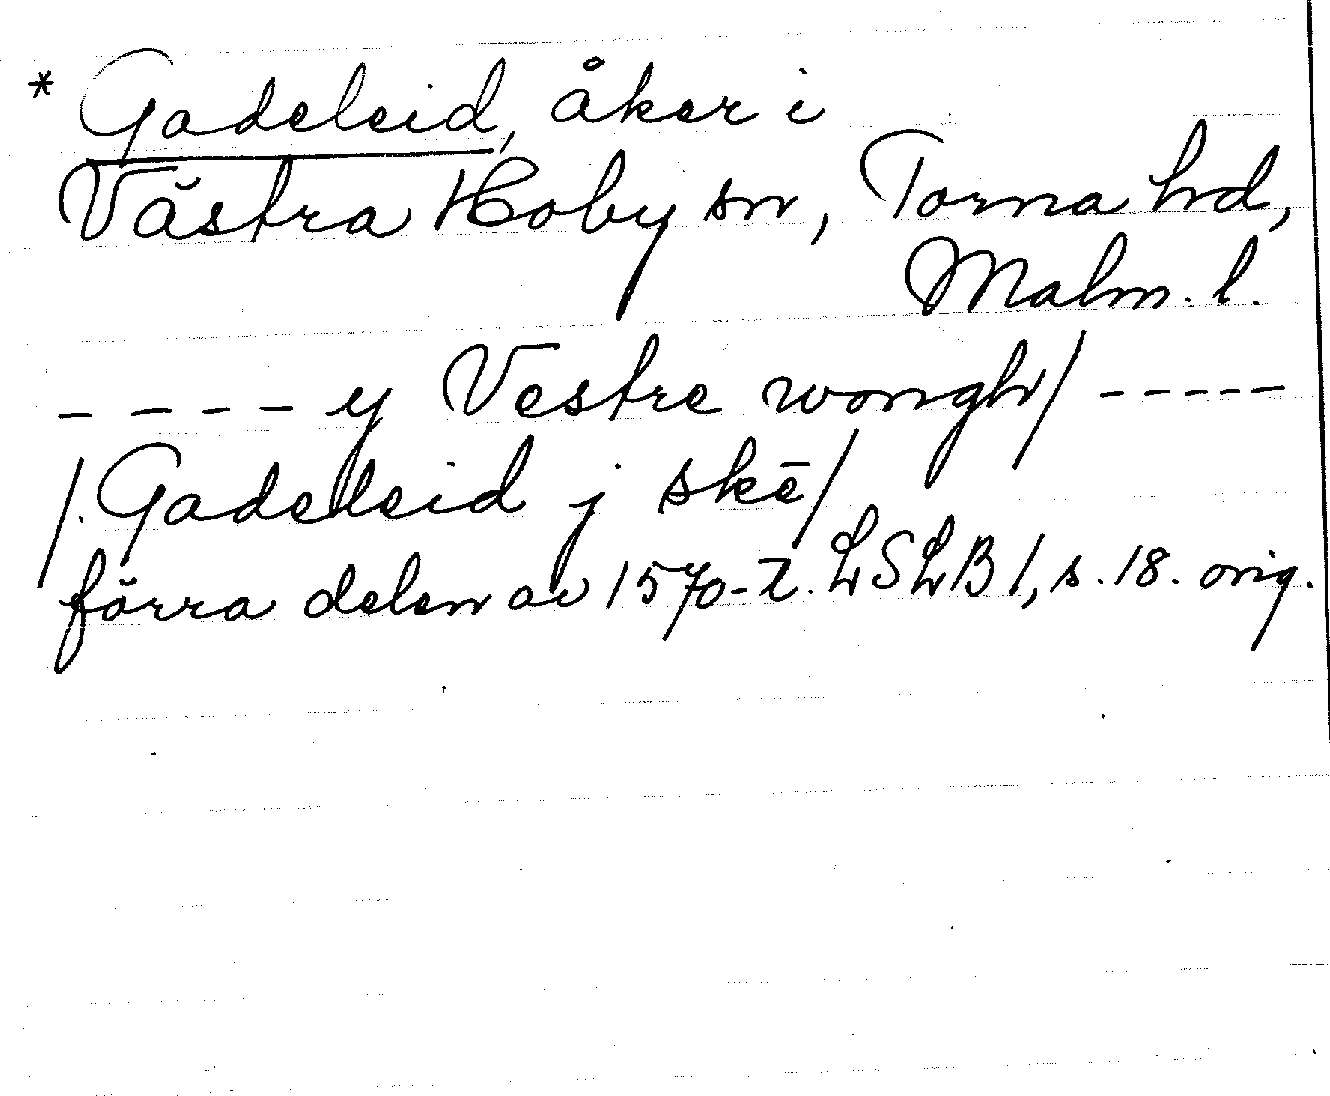 * Gadeleid, åker i
Västra Hoby sn, Torna hd,
Malm. l.
- - - - y Vestre wongh/ - - - - -
/. Gadeleid j skē/
förra delen av 1570-t. LSLB 1, s. 18. orig.